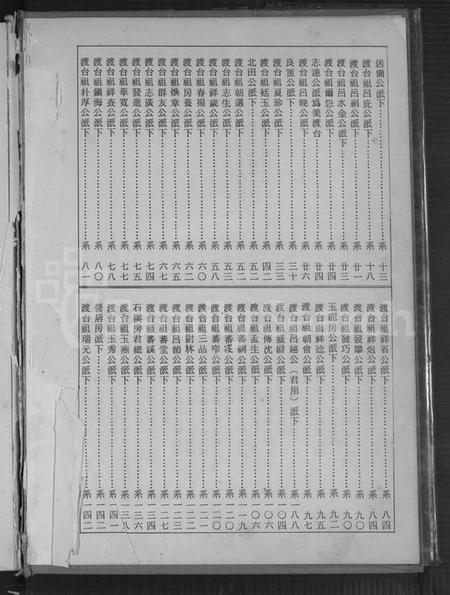 居簡公派下……系 十三
渡台祖呂庇公派下……系 十八
渡台祖呂祠公派下……系 廿一
渡台祖呂水金公派下……系 廿三
渡台祖爾怨公派下……系 廿四
志達公派爲美渡台……系 廿四
渡台祖呂晚公派下……系 廿六
良璽公派下……系 三十
渡台祖夏珍公派下……系 三三
渡台祖廷玉公派下……系 四二
北田公派下……系 五二
渡台祖朝選公派下……系 五二
渡台祖志生公派下……系 五三
渡台祖祥歲公派下……系 五八
渡台祖春揚公派下……系 六〇
渡台祖房養公派下……系 六二
渡台祖煥章公派下……系 六五
渡台祖群友公派下……系 六七
渡台祖志廣公派下……系 七四
渡台祖發進公派下……系 七五
渡台祖華寬公派下……系 七七
渡台祖祥查公派下……系 七八
渡台祖鎭海公派下……系 八〇
渡台祖朴厚公派下……系 八
渡台祖祥省公派下……系 八四
渡台祖祥炮公派下……系 八四
渡台祖發攀公派下……系 九〇
渡台祖發巧公派下……系 九〇
玉龍房公派下……系 九二
渡台祖祥認公派下……系 九五
渡台祖朝會公派下……系 九七
渡台祖呂越公（君用）派下……系 一八八
渡台祖威樹公派下……系 一〇四
渡台祖傳沈公派下……系 一〇六
渡台祖孟生公派下……系 一〇六
渡台祖蕃嗣公派下……系 一一九
渡台祖蕃窪公派下……系 一二〇
渡台祖蕃窄公派下……系 一二〇
渡台祖三品公派下……系 一二一
渡台祖尉林公派下……系 一二二
渡台祖呂節公派下……系 一二三
渡台祖蕃堂公派下……系 一三四
渡台祖蕃謀公派下……系 一三四
石溪房君縂公派下……系 一三六
渡台祖玉燕公派下……系 一三八
渡台祖玉秀公派下……系 一四一
營厝房派下……系 一四二
渡台祖瑞元公派下……系 一四二